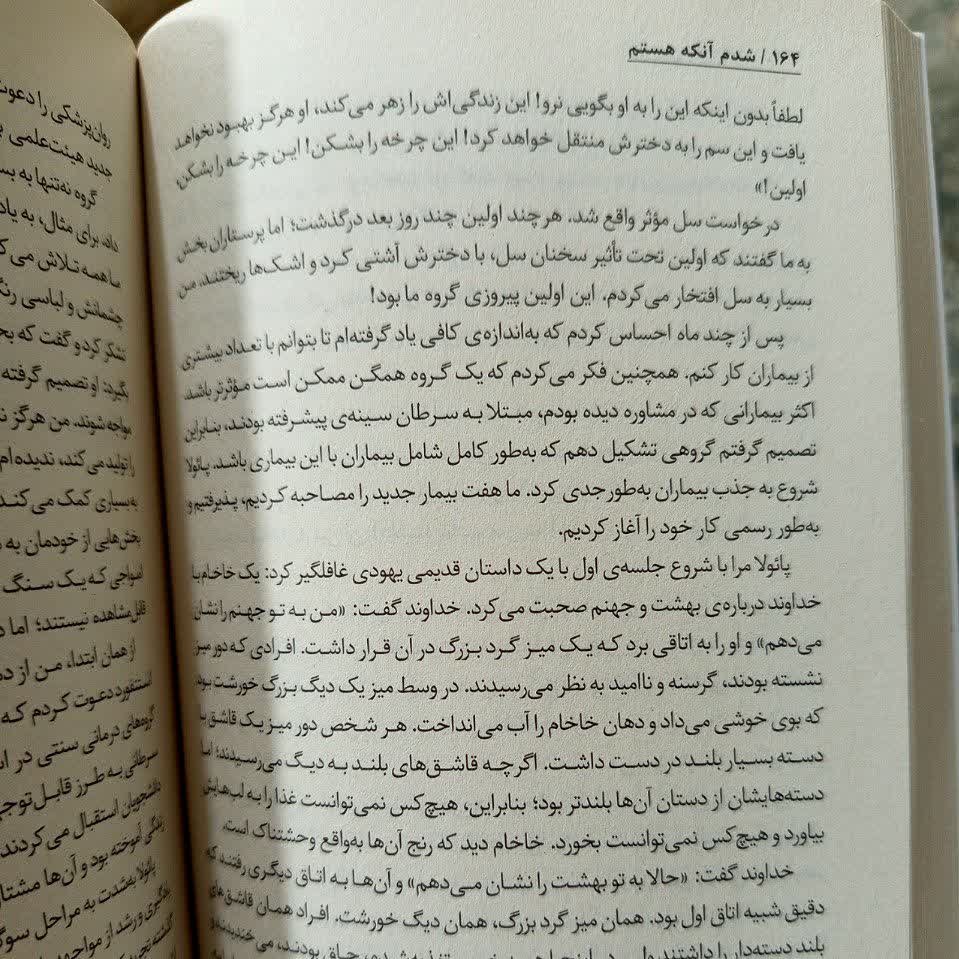 ۱۶۴ / شدم آنکه هستم
لطفاً بدون اینکه این را به او بگویی نرو! این زندگی‌اش را زهر می‌کند، او هرگز بهبود نخواهد
یافت و این سم را به دخترش منتقل خواهد کرد! این چرخه را بشکن! این چرخه را بشکن،
اولین!»
درخواست سل مؤثر واقع شد. هرچند اولین چند روز بعد درگذشت؛ اما پرستاران بخش
به ما گفتند که اولین تحت تأثیر سخنان سل، با دخترش آشتی کرد و اشک‌ها ریختند. من
بسیار به سل افتخار می‌کردم. این اولین پیروزی گروه ما بود!
پس از چند ماه احساس کردم که به‌اندازه‌ی کافی یاد گرفته‌ام تا بتوانم با تعداد بیشتری
از بیماران کار کنم. همچنین فکر می‌کردم که یک گروه همگن ممکن است مؤثرتر باشد.
اکثر بیمارانی که در مشاوره دیده بودم، مبتلا به سرطان سینه‌ی پیشرفته بودند، بنابراین
تصمیم گرفتم گروهی تشکیل دهم که به‌طور کامل شامل بیماران با این بیماری باشد. پائولا
شروع به جذب بیماران به‌طور جدی کرد. ما هفت بیمار جدید را مصاحبه کردیم، پذیرفتیم و
به‌طور رسمی کار خود را آغاز کردیم.
پائولا مرا با شروع جلسه‌ی اول با یک داستان قدیمی یهودی غافلگیر کرد: یک خاخام با
خداوند درباره‌ی بهشت و جهنم صحبت می‌کرد. خداوند گفت: «من به تو جهنم را نشان
می‌دهم» و او را به اتاقی برد که یک میز گرد بزرگ در آن قرار داشت. افرادی که دور میز
نشسته بودند، گرسنه و ناامید به نظر می‌رسیدند. در وسط میز یک دیگ بزرگ خورشت بود
که بوی خوشی می‌داد و دهان خاخام را آب می‌انداخت. هر شخص دور میز یک قاشق با
دسته بسیار بلند در دست داشت. اگرچه قاشق‌های بلند به دیگ می‌رسیدند؛ اما
دسته‌هایشان از دستان آن‌ها بلندتر بود؛ بنابراین، هیچ‌کس نمی‌توانست غذا را به لب‌هایش
بیاورد و هیچ‌کس نمی‌توانست بخورد. خاخام دید که رنج آن‌ها به‌واقع وحشتناک است.
خداوند گفت: «حالا به تو بهشت را نشان می‌دهم» و آن‌ها به اتاق دیگری رفتند که
دقیق شبیه اتاق اول بود. همان میز گرد بزرگ، همان دیگ خورشت. افراد همان قاشق‌های
بلند دسته‌دار را داشتند
روان‌پزشکی را دعوت
جدید هیئت‌علمی
گروه نه‌تنها به
داد. برای مثال، به یاد
ما همه تلاش می‌ک
چشمانش و لباسی رنگ
تشکر کرد و گفت که
بگیرد: او تصمیم گرفته
مواجه شوند. من هرگز
را تولید می‌کند، ندیده‌ام
به بسیاری کمک می‌کند
بخش‌هایی از خودمان به
امواجی که یک سنگ
قابل‌مشاهده نیستند؛ اما
از همان ابتدا، من از
استنفورد دعوت کردم که
گروه‌های درمانی سنتی در
سرطانی به طرز قابل‌توجهی
دانشجویان استقبال می‌کردند
زندگی آموخته بود و آن‌ها
پائولا به‌شدت به مراحل سوگ
یادگیری و رشد از مواجهه